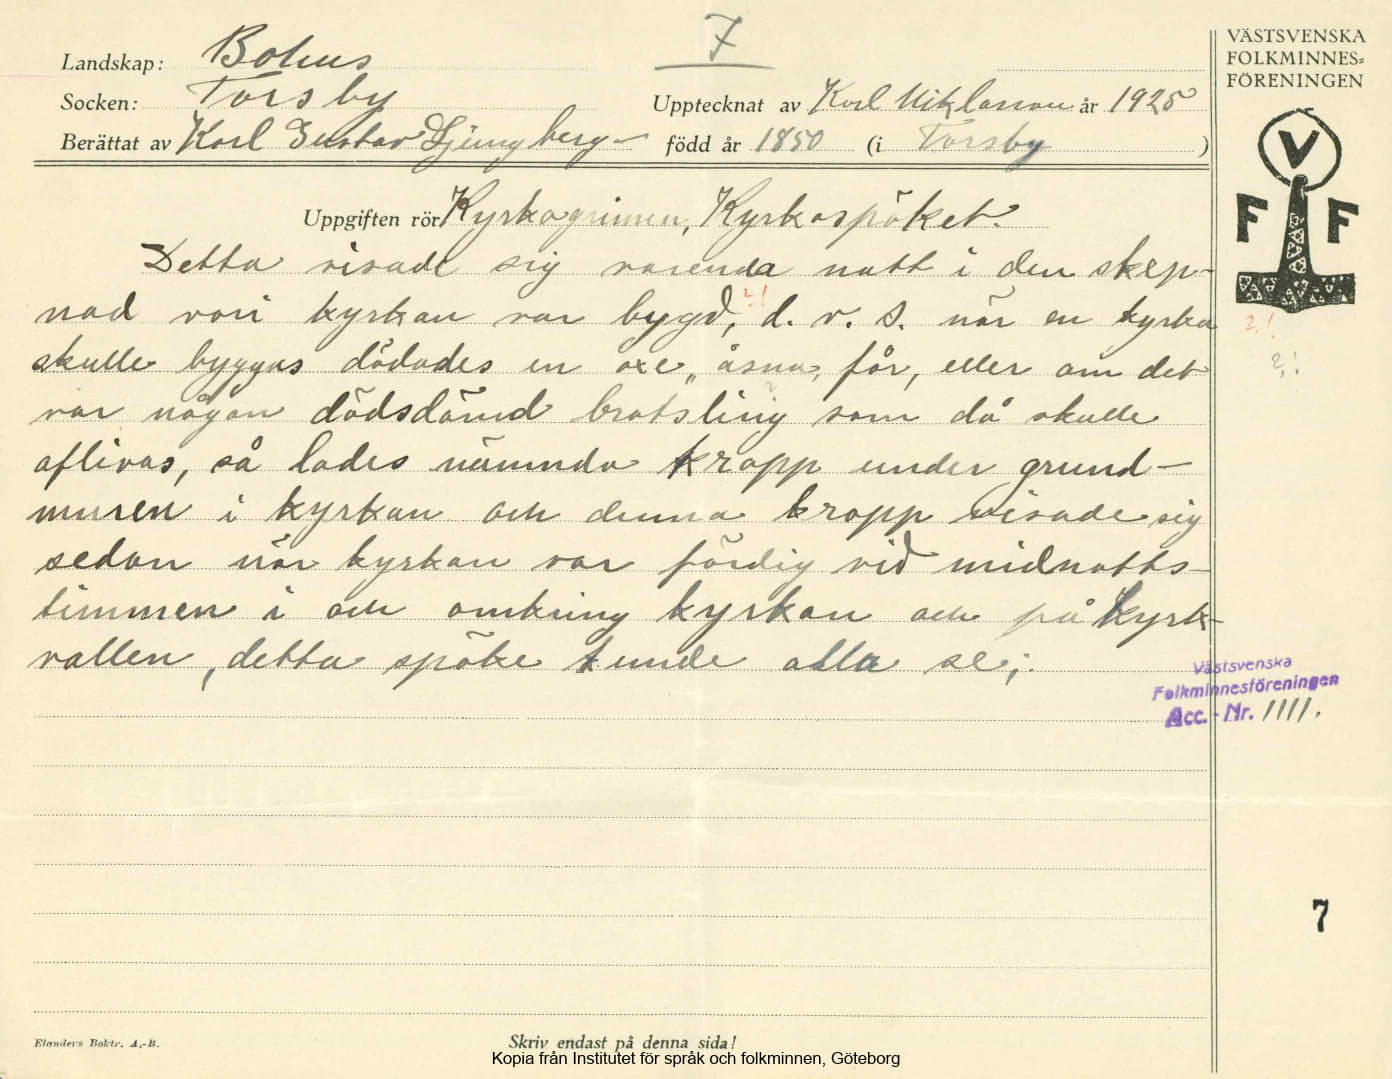 7
VÄSTSVENSKA
FOLKMINNES=
FÖRENINGEN
V
F F
Landskap: Bohus
Socken: Torsby
Upptecknat av Karl Niklasson år 1925
Berättat av Karl Gustav Ljungberg
född år 1850 (i Torsby )
Uppgiften rör Kyrkogrimen, Kyrkospöket.
Detta visade sig varenda natt i den skep-
nad vari kyrkan var bygd, d. v. s. när en kyrka
2.!
2.!
2.!
skulle byggas dödades en oxe, åsna, får, eller om det
var någon dödsdömd brotsling som då skulle
aflivas, så lades nämnda kropp under grund-
muren i kyrkan och denna kropp visade sig
sedan när kyrkan var färdig vid midnatts-
timmen i och omkring kyrkan och på kyrk-
vallen, detta spöke kunde alla se;.
Västsvenska
Folkminnesföreningen
Acc. - Nr. 1111.
7
Elanders Boktr. A.-B.
Skriv endast på denna sida!
Kopia från Institutet för språk och folkminnen, Göteborg